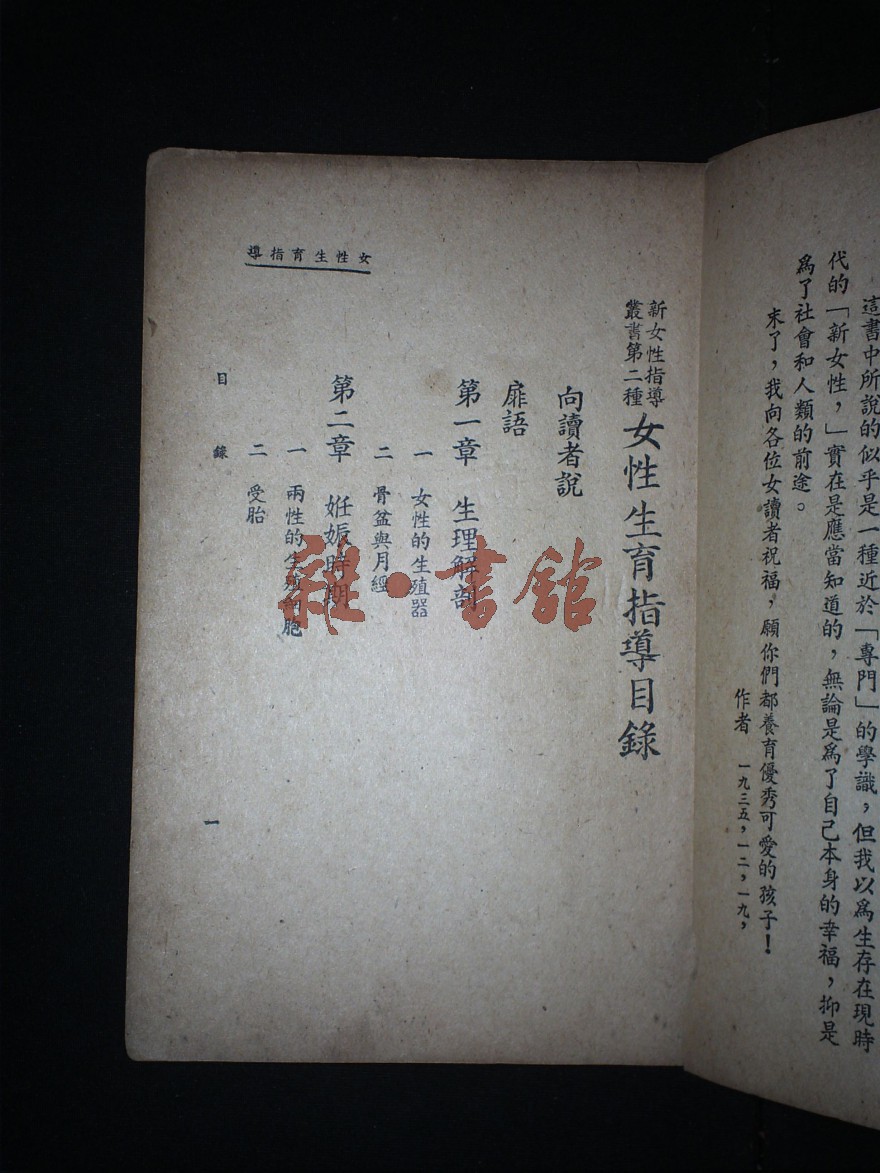 這書中所說的似乎是一種近於「專門」的學識，但我以爲生存在現時
代的「新女性，」實在是應當知道的，無論是爲了自己本身的幸福，抑是
爲了社會和人類的前途。
末了，我向各位女讀者祝福，願你們都養育優秀可愛的孩子！
作者 一九三五，一二，一九，
新女性指導
叢書第二種
女性生育指導目錄
向讀者說
扉語
第一章 生理解剖
一 女性的生殖器
二 骨盆與月經
第二章 姙娠時期
一 兩性的生殖細胞
二 受胎
女性生育指導
目錄
一
雜·書館